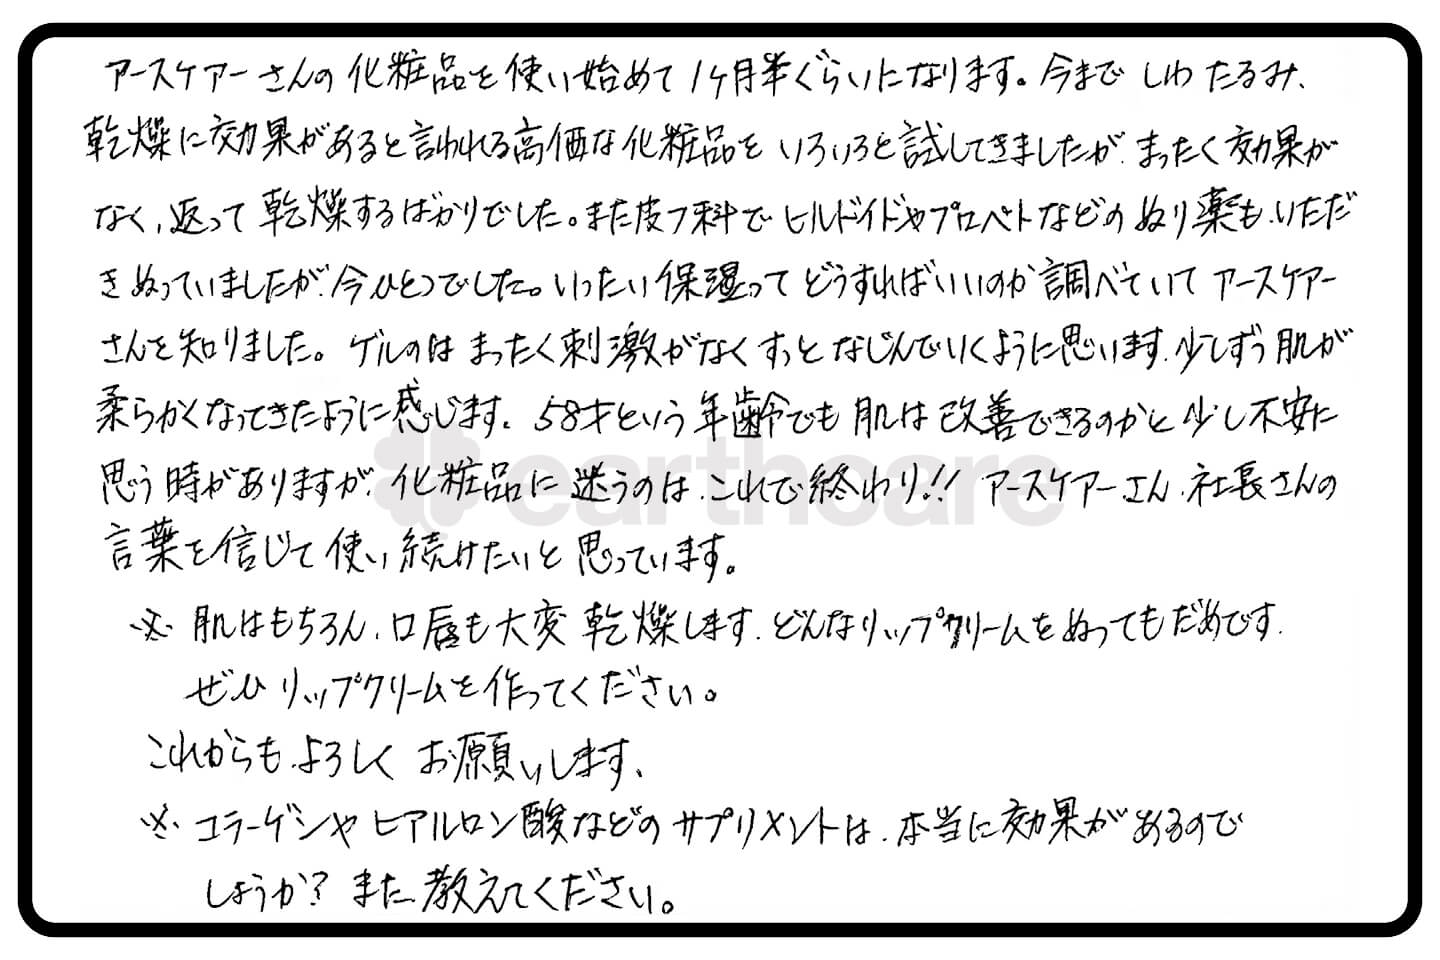 アースケアーさんの化粧品を使い始めて1ヶ月半ぐらいになります。今まで しわ たるみ、
乾燥に効果があると言われる高価な化粧品を いろいろと試してきましたが、まったく効果が
なく、返って 乾燥するばかりでした。また皮フ科で ヒルドイドやプロペトなどの ぬり薬も、いただ
き ぬっていましたが、今ひとつでした。いったい保湿って どうすればいいのか 調べていて アースケアー
さんを知りました。ゲルのは まったく刺激がなく すっと なじんでいくように思います、少しずう 肌が
柔らかくなってきたように感じます。58才という 年齢でも 肌は 改善できるのかと 少し不安に
思う 時がありますが、化粧品に 迷うのは、これで終わり!! アースケアーさん、社長さんの
言葉を信じて 使い続けたいと 思っています。
※ 肌はもちろん、口唇も大変 乾燥します、どんなリップクリームをぬってもだめです、
ぜひ リップクリームを作ってください。
これからも、よろしく お願いします、
※ コラーゲンや ヒアルロン酸などの サプリメントは、本当に効果があるので
しょうか? また 教えてください。
earthcare